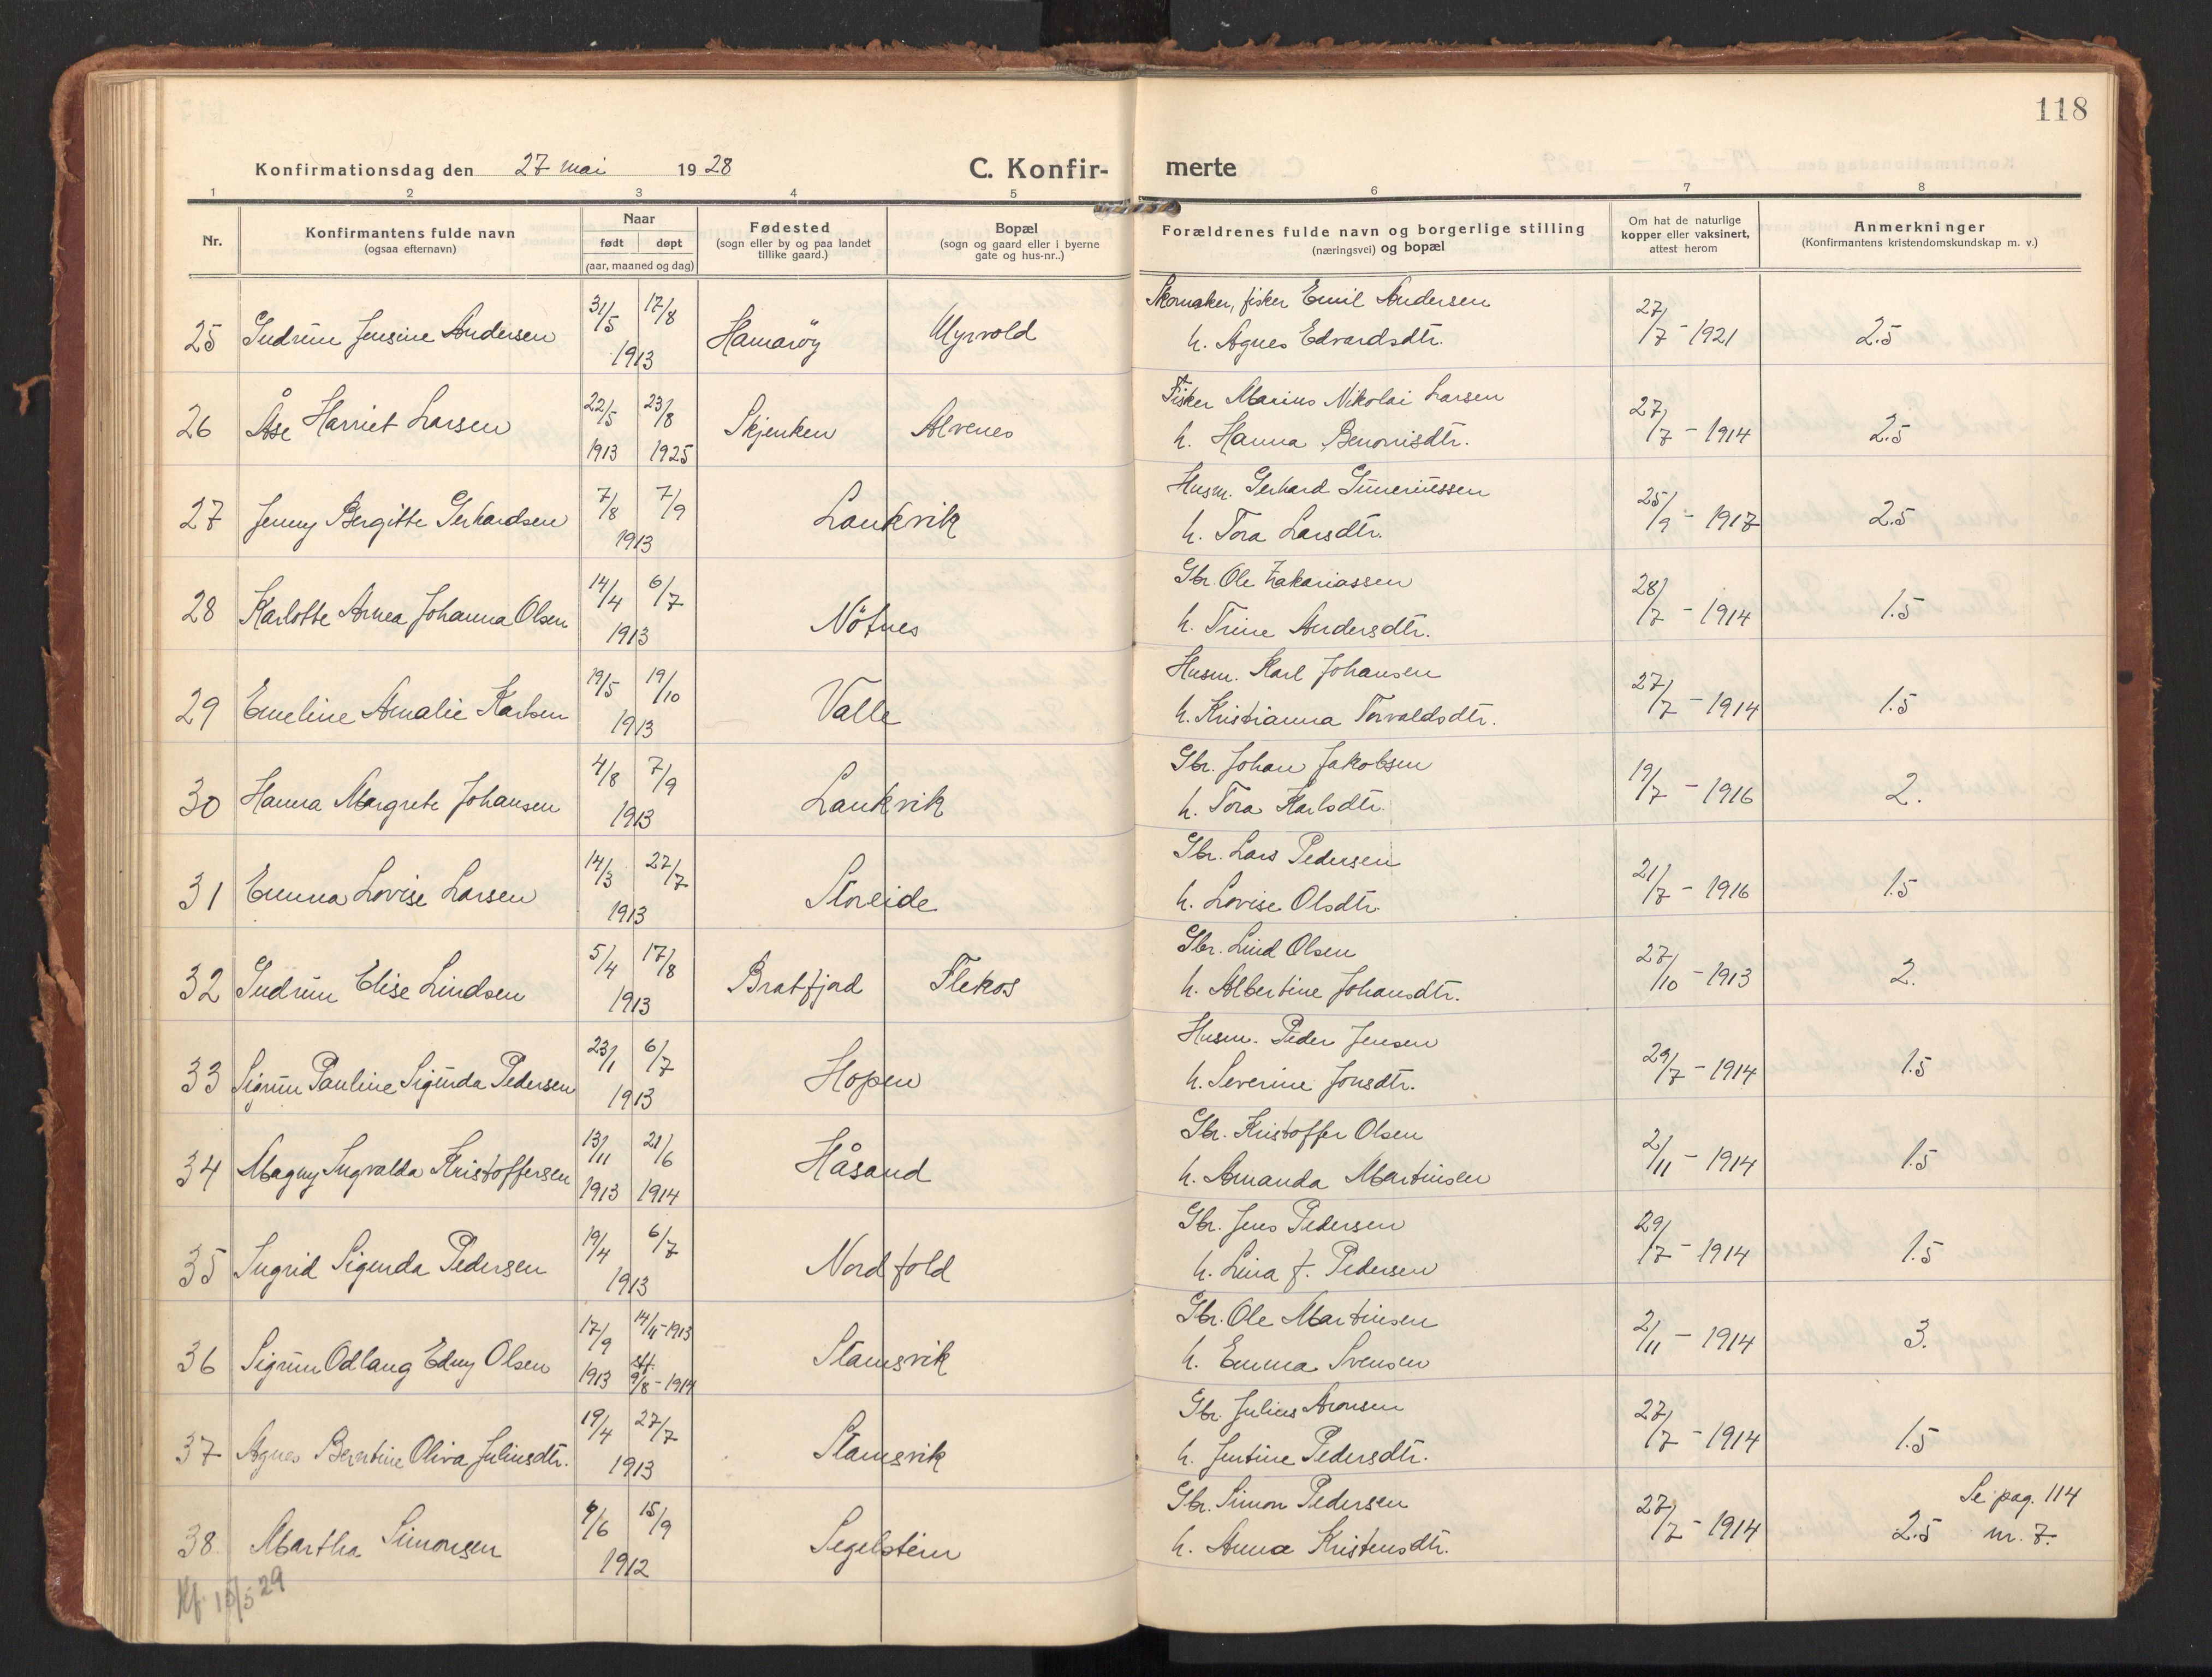 118
Konfirmationsdag den 27 mai 1928 C. Konfir- merte
1 2 3 4 5 6 7 8
Nr.
Konfirmantens fulde navn
(ogsaa efternavn)
Naar
født døpt
(aar, maaned og dag)
Fødested
(sogn eller by og paa landet
tillike gaard.)
Bopæl
(sogn og gaard eller i byerne
gate og hus-nr..)
Forældrenes fulde navn og borgerlige stilling
(næringsvei) og bopæl
Om hat de naturlige
kopper eller vaksinert,
attest herom
Anmerkninger
(Konfirmantens kristendomskundskap m. v.)
31/5 17/8 Skomaker, fisker Emil Andersen
25 Gudrun Jensine Andersen 1913 Hamarøy Myrvold h. Agnes Edvardsdtr. 27/7 - 1921 2.5
22/5 23/8 Fisker Marius Nikolai Larsen
26 Åse Harriet Larsen 1913 1925 Skjenken Alvenes h. Hanna Benonisdtr. 27/7 - 1914 2.5
7/8 7/9 Husm. Gerhard Sünerüssen
27 Jenny Bergitte Gerhardsen 1913 Laukvik h. Tora Larsdtr. 25/9 - 1917 2.5
14/4 6/7 Gbr. Ole Zakariassen
28 Karlotte Arnea Johanna Olsen 1913 Nötnes h. Trine Andersdtr. 28/7 - 1914 1.5
19/5 19/10 Husm. Karl Johansen
29 Emeline Amalie Karlsen 1913 Valle h. Kristianna Torvaldsdtr. 27/7 - 1914 1.5
4/8 7/9 Gbr. Johan Jakobsen
30 Hanna Margrete Johansen 1913 Laukvik h. Tora Karlsdtr. 19/7 - 1916 2.
14/3 27/7 Gbr. Lars Pedersen
31 Emma Lovise Larsen 1913 Storeide h. Lovise Olsdtr. 21/7 - 1916 1.5
5/4 17/8 Gbr. Lind Olsen
32 Gudrun Elise Lindsen 1913 Bratfjord Flekos h. Albertine Johansdtr. 27/10 - 1913 2.
23/1 6/7 Husm. Peder Jensen
33 Sigrun Pauline Sigurda Pedersen 1913 Hopen h. Severine Jonsdtr. 29/7 - 1914 1.5
13/11 21/6 Gbr. Kristoffer Olsen
34 Magny Ingvalda Kristoffersen 1913 1914 Håsand h. Amanda Martinsen 2/11 - 1914 1.5
19/4 6/7 Gbr. Jens Pedersen
35 Ingrid Sigurda Pedersen 1913 Nordfold h. Lina f. Pedersen 29/7 - 1914 1.5
17/9 14/11-1913 Gbr. Ole Martinsen
36 Sigrun Odlaug Edny Olsen 1913 stf. 9/8 - 1914 Stamsvik h. Emma Svensen 2/11 - 1914 3.
19/4 27/7 Gbr. Julius Aronsen
37 Agnes Berntine Oliva Juliusdtr. 1913 Stamsvik h. Jentine Pedersdtr. 27/7 - 1914 1.5
15/9 Gbr. Simon Pedersen Se pag. 114
38 Martha Simonsen 1912 Segelstein h. Anna Kristensdtr. 27/7 - 1914 2.5 nr. 7.
Kf. 15/5 29